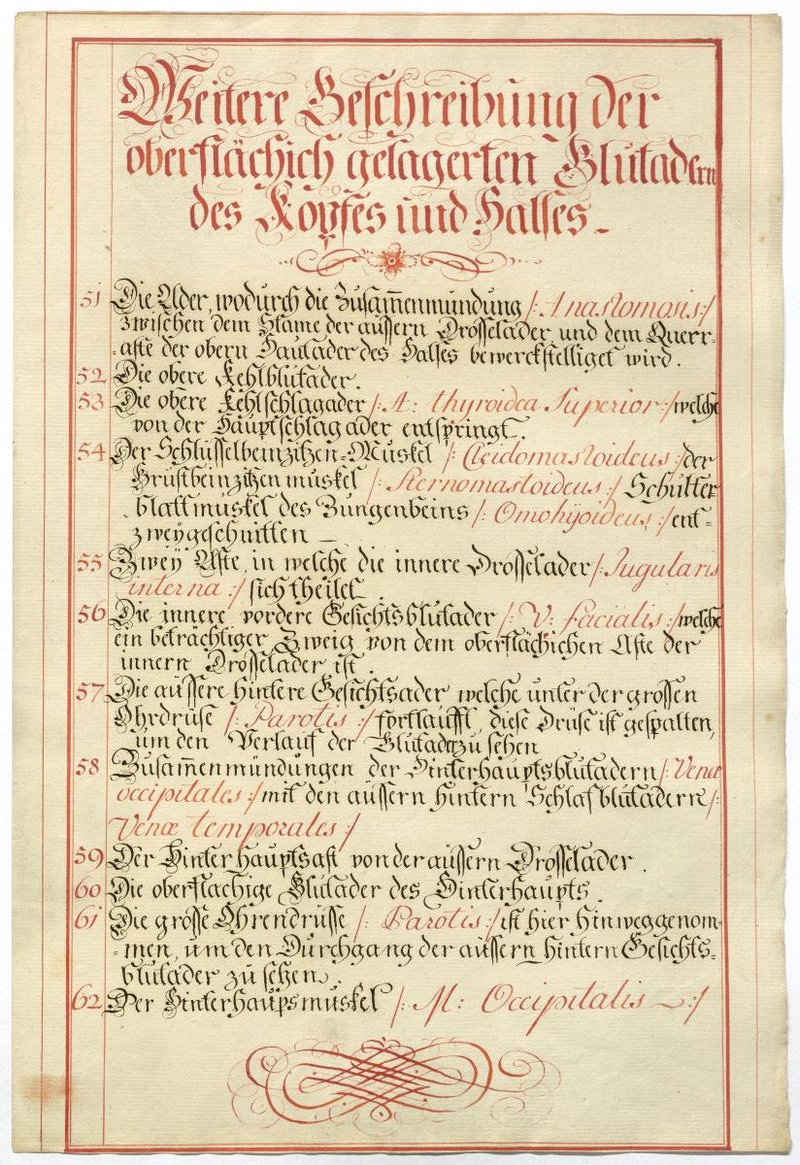 Weitere Beschreibung der
oberflächich gelagerten Blutadern
des Kopfes und Halses.
51 Die Ader, wodurch die Zusam̅enmündung /: Anastomosis :/
zwischen dem Stame der äussern Drosselader und dem Querr-
aste der obern Hautader des Halses bewerckstelliget wird.
52 Die obere Kehlblutader.
53 Die obere Kehlschlagader /: A: thyroidea Superior :/ welche
von der Hauptschlagader entspringt.
54 Der Schlüsselbeinzitzen-Muskel /: Cleidomastoideus :/ der
Brustbeinzitzenmuskel /: Sternomastoideus :/ Schulter
blattmuskel des Zungenbeins /: Omohyoideus :/ ent-
zweygeschnitten —
55 Zwey Äste, in welche die innere Drosselader /: Jugularis
interna :/ sich theilet.
56 Die innere vordere Gesichtsblutader /: V: facialis :/ welche
ein beträchtiger Zweig von dem oberflächichen Aste der
innern Drosselader ist.
57 Die äussere hintere Gesichtsader welche unter der grossen
Ohrdrüse /: Parotis :/ fortlaufft, diese Drüse ist gespalten,
um den Verlauf der Blutader zu sehen
58 Zusam̅enmündungen der Hinterhauptsblutadern /: Venæ
occipitales :/ mit den äussern hintern Schlafblutadern /:
Venæ temporales :/
59 Der Hinterhauptsast von der äussern Drosselader.
60 Die oberflachige Blutader des Hinterhaupts.
61 Die grosse Ohrendrüsse /: Parotis :/ ist hier hinweggenom-
men, um den Durchgang der äussern hintern Gesichts-
blutader zu sehen.
62 Der Hinterhaupsmuskel /: M: Occipitalis — :/